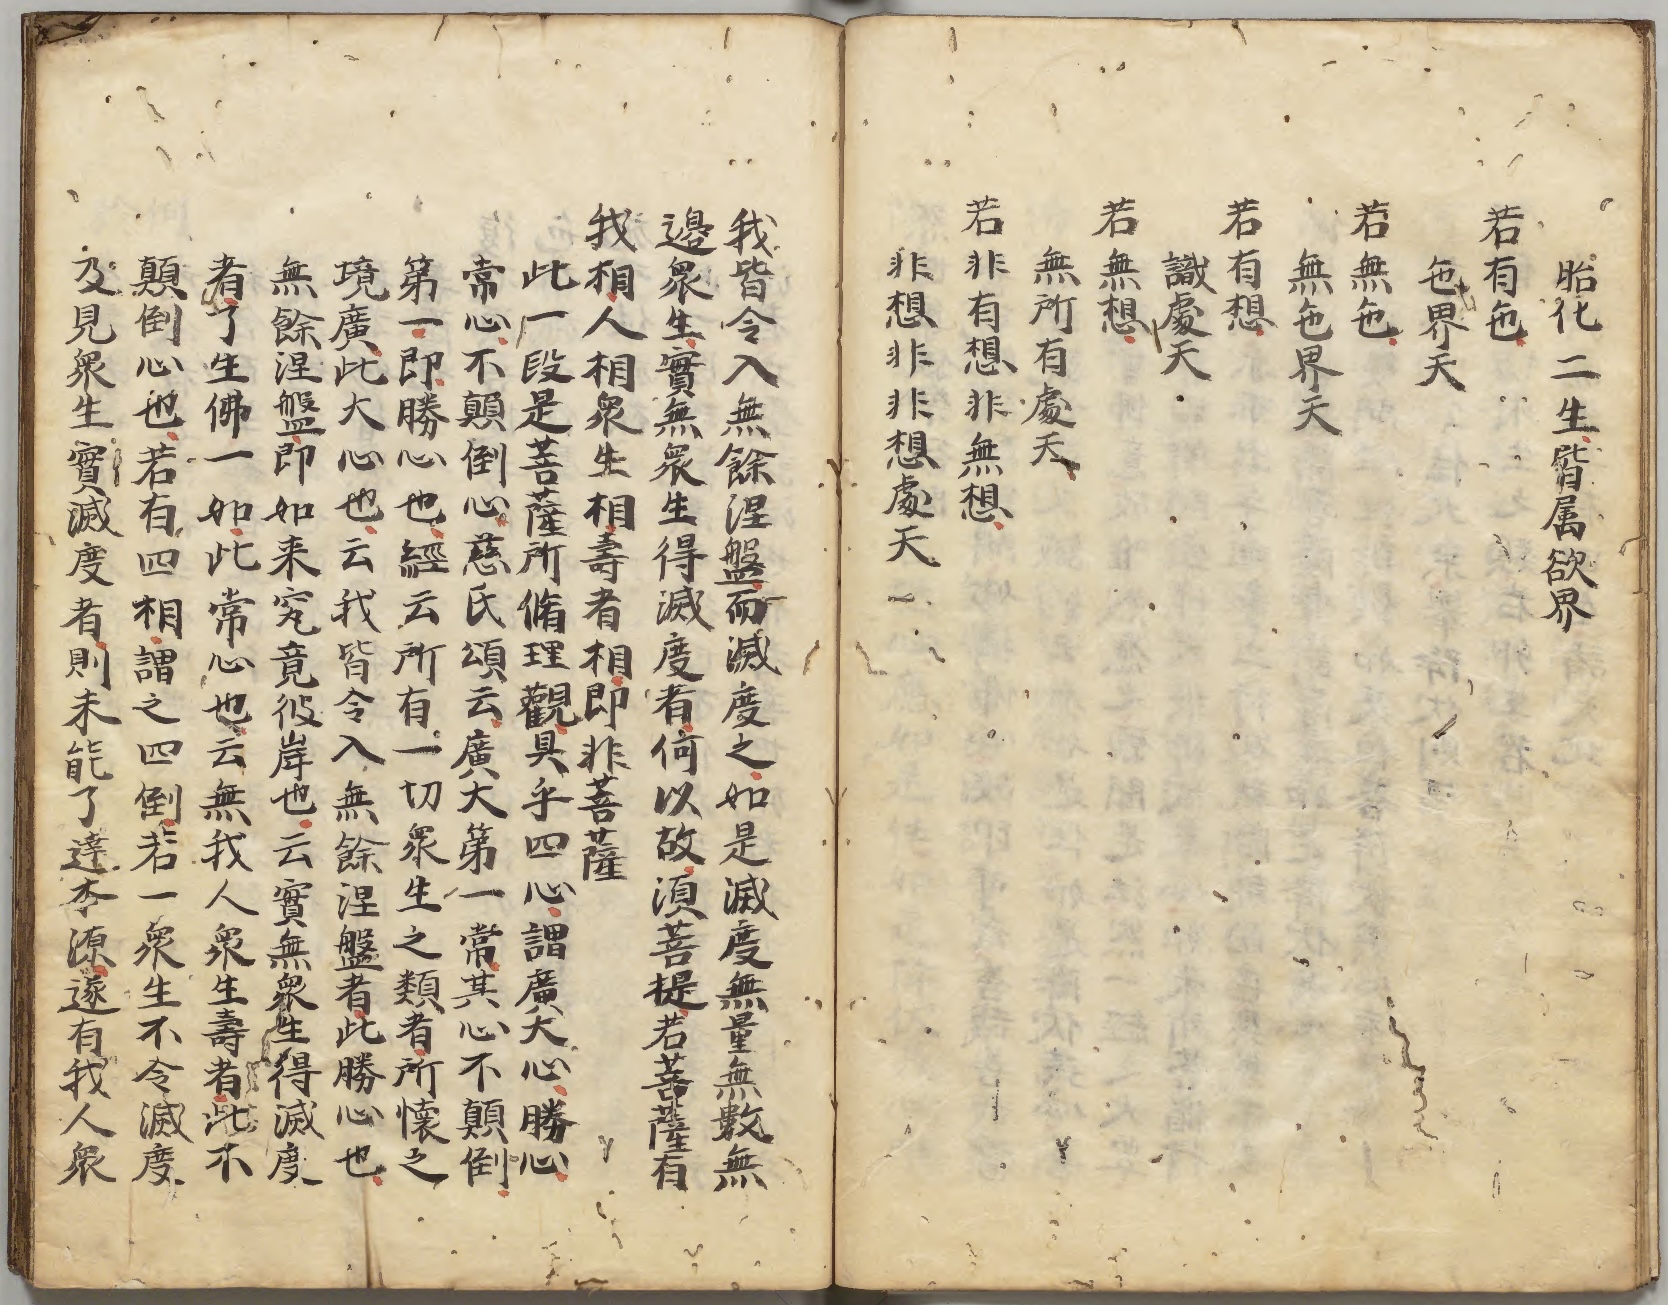 胎化二生皆属欲界
若有色
色界天
若無色
無色界天
若有想
識處天
若無想
無所有處天
若非有想非無想
非想非非想處天
我皆令入無餘涅盤而滅度之如是滅度無量無數無
邉衆生實無衆生得滅度者何以故湏菩提若菩薩有
我相人相衆生相壽者相即非菩薩
此一段是菩薩所脩理觀具乎四心謂廣大心勝心
常心不顛倒心慈氏頌云廣大第一常其心不顛倒
第一即勝心也經云所有一切衆生之類者所懷之
境廣此大心也云我皆令入無餘涅盤者此勝心也
無餘涅盤即如来究竟彼岸也云實無衆生得滅度
者了生佛一如此常心也云無我人衆生壽者此不
顛倒心也若有四相謂之四倒若一衆生不令滅度
及見衆生實滅度者則未能了達本源遂有我人衆